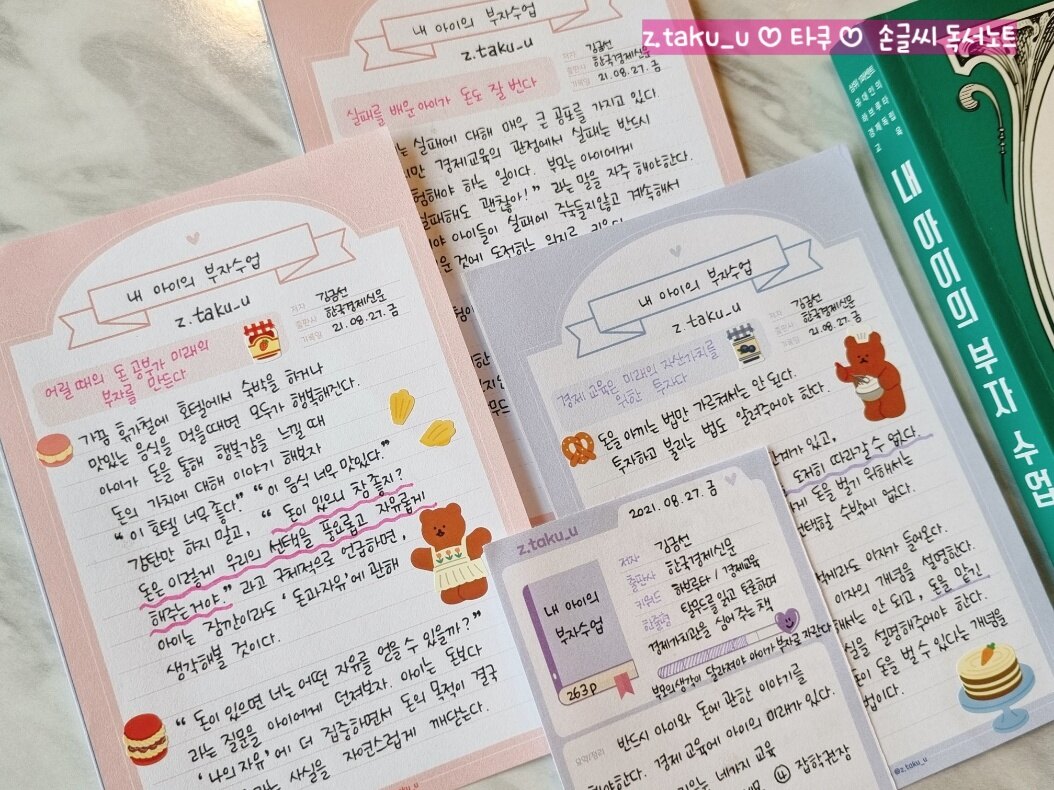 z.taku_u ♡ 타쿠 ♡ 손글씨 독서노트
내 아이의 부자수업
z.taku_u
저자 김금선
출판사 한국경제신문
기록일 21.08.27.금
실패를 배운 아이가 돈도 잘 번다
는 실패에 대해 매우 큰 공포를 가지고 있다.
지만 경제교육의 관점에서 실패는 반드시
험해야 하는 일이다. 부모는 아이에게
실패해도 괜찮아!" 라는 말을 자주 해야한다.
야 아이들이 실패에 주눅들지않고 계속해서
운 것에 도전하는 의지를
내 아이의 부자수업
z.taku_u
저자 김금선
출판사 한국경제신문
기록일 21.08.27.금
어릴 때의 돈 공부가 미래의
부자를 만든다
가끔 휴가철에 호텔에서 숙박을 하거나
맛있는 음식을 먹을때면 모두가 행복해진다.
아이가 돈을 통해 행복감을 느낄 때
돈의 가치에 대해 이야기 해보자
"이 호텔 너무 좋다." "이 음식 너무 맛있다."
감탄만 하지 말고, "돈이 있으니 참 좋지?
돈은 이렇게 우리의 선택을 풍요롭고 자유롭게
해주는거야." 라고 구체적으로 언급하면,
아이는 잠깐이라도 '돈과자유'에 관해
생각해볼 것이다.
"돈이 있으면 너는 어떤 자유를 얻을 수 있을까?"
라는 질문을 아이에게 던져보자. 아이는 돈보다
'나의 자유'에 더 집중하면서 돈의 목적이 결국
라는 사실을 자연스럽게 깨닫는다.
내 아이의 부자수업
z.taku_u
저자 김금선
출판사 한국경제신문
기록일 21.08.27.금
경제 교육은 미래의 자산가치를
위한 투자다
돈을 아끼는 법만 가르쳐서는 안 된다.
투자하고 불리는 법도 알려주어야 한다.
관계가 있고,
도저히 따라갈 수 없다.
게 돈을 벌기 위해서는
선택할 수밖에 없다.
적게라도 이자가 들어온다.
이자의 개념을 설명한다.
해서는 안 되고, 돈을 맡긴
실을 설명해주어야 한다.
돈이 돈을 벌 수 있다는 개념을
법이다.
@z.taku_u
z.taku_u
2021. 08. 27. 금
내 아이의
부자수업
263p
저자 김금선
출판사 한국경제신문
키워드 하브루타 / 경제교육
한줄평 탈무드를 읽고 토론하며
경제가치관을 심어 주는 책
부모의생각이 달라져야 아이가 부자로 자란다
요약정리
반드시 아이와 돈에 관한 이야기를
해야한다. 경제 교육에 아이의 미래가 있다.
네가지 교육
④ 잡학권장
상위 1퍼센트
유대인의
하브루타
경제독립
교육
내 아이의 부자 수업